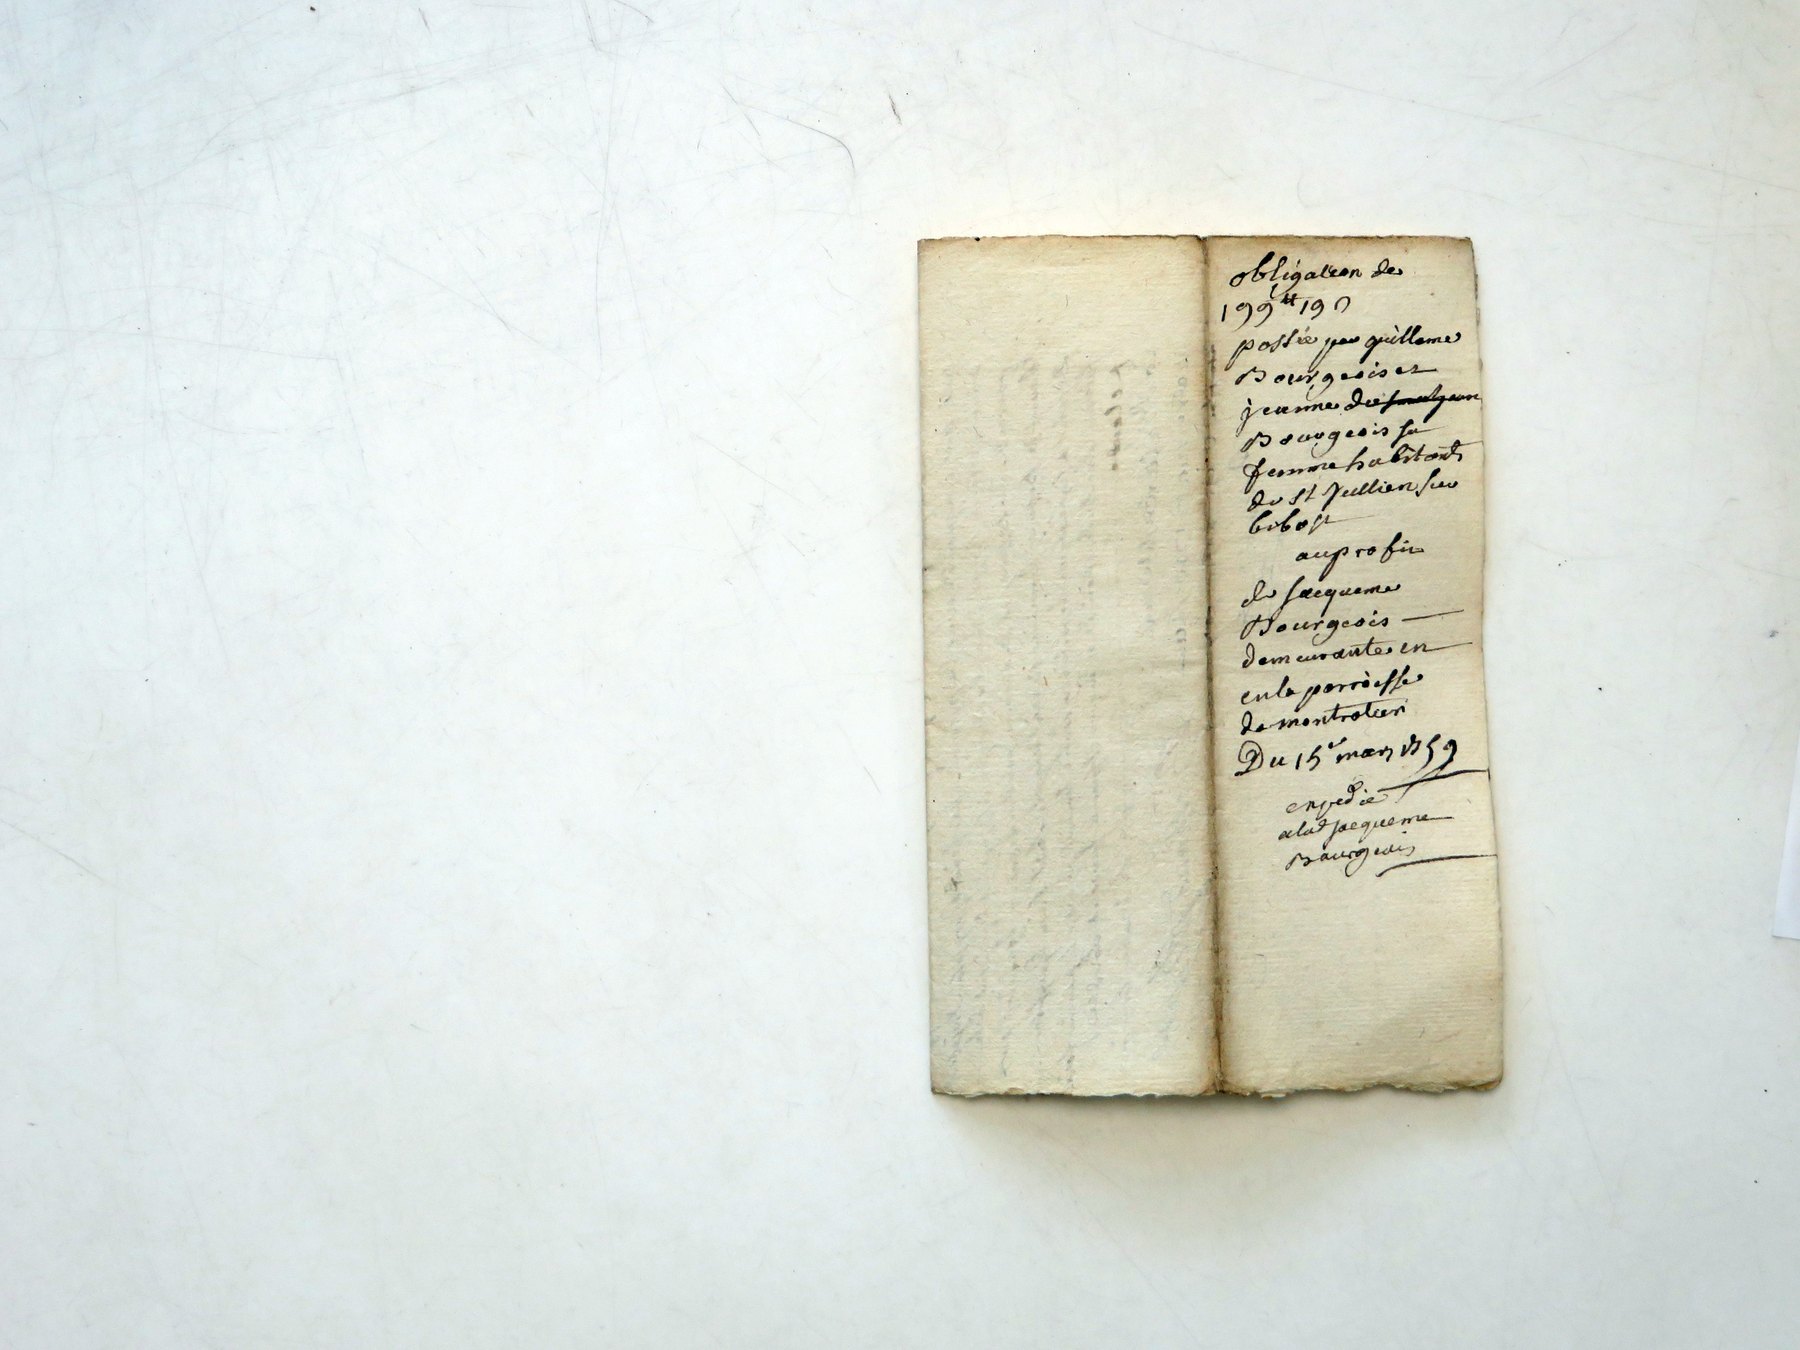 obligation de
199ᵗᵗ 19 s
passée par guilleme
Bourgeois et
jeanne de
Bourgeois sa
femme habitants
de st Jullien sur
bibost
au profit
de jacqueme
Bourgeois
demeurante en
en la parroisse
de montrotier
Du 15ᵉ mars 1759
expedié
a lad jacqueme
Bourgeois